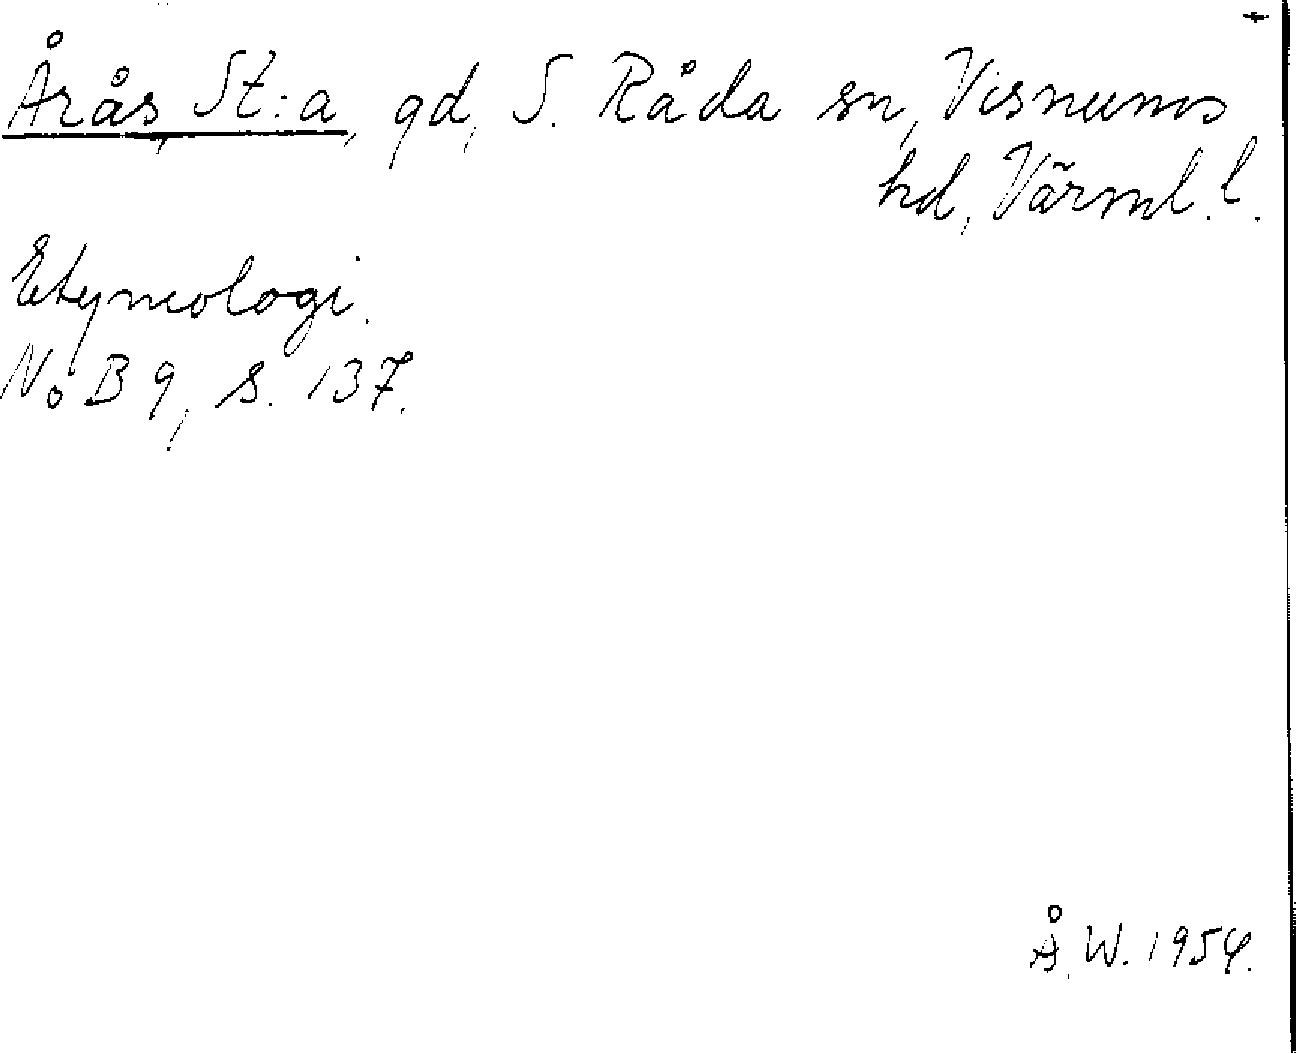 Årås, St:a, gd, S. Råda sn, Visnums
hd, Värml. l.
Etymologi.
NoB 9, s. 137.
Å. W. 1954.